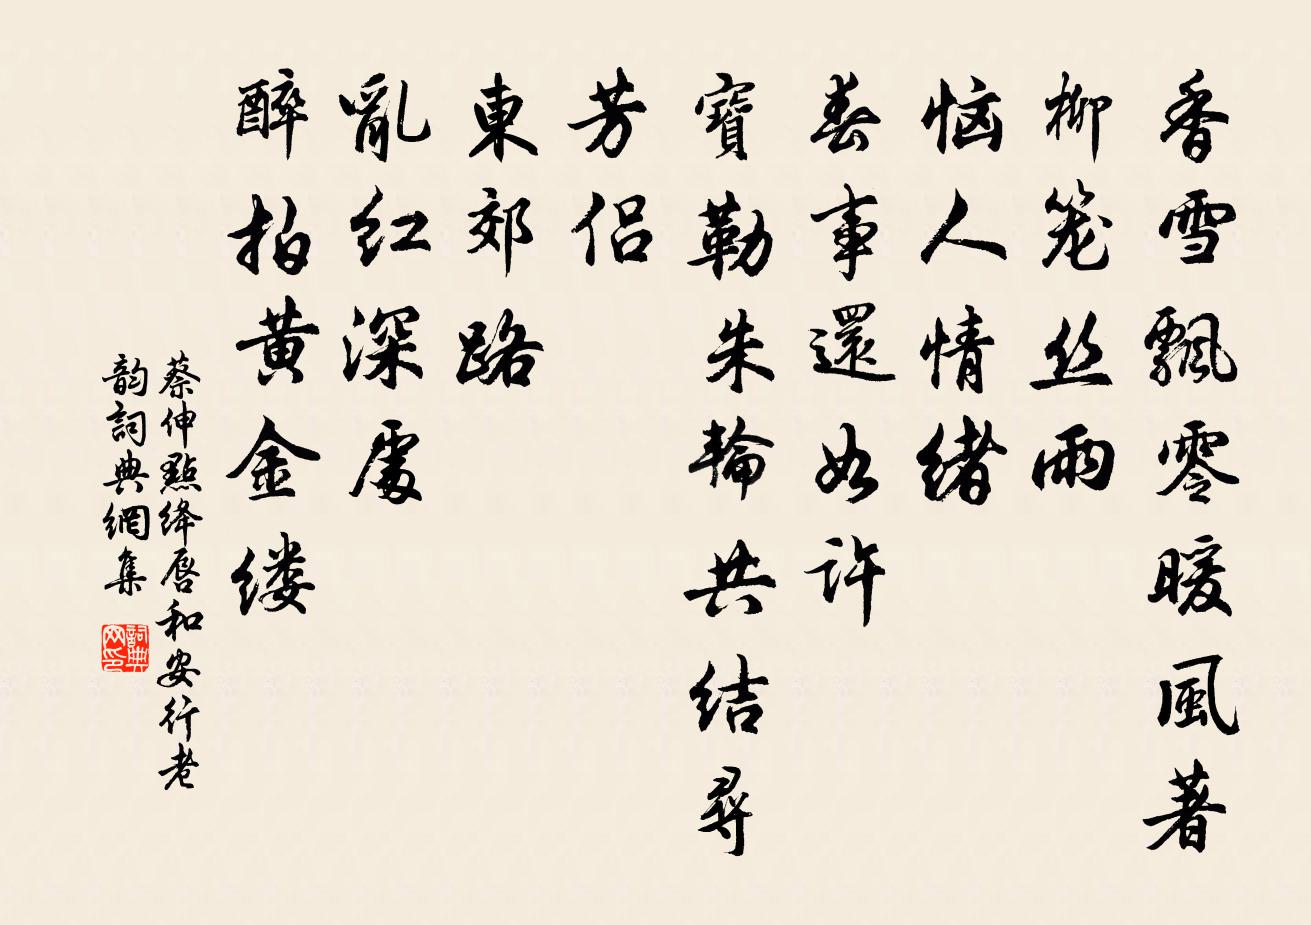 香雪飄零暖風著
柳笼丝雨
恼人情绪
春事還如许
寶勒朱輪共结尋
芳侣
東郊路
亂红深處
醉拍黄金缕
蔡伸點绛唇和安行老
韵詞典網集
詞典网印